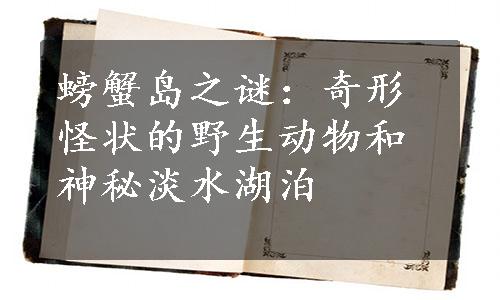 螃蟹岛之谜：奇形
怪状的野生动物和
神秘淡水湖泊